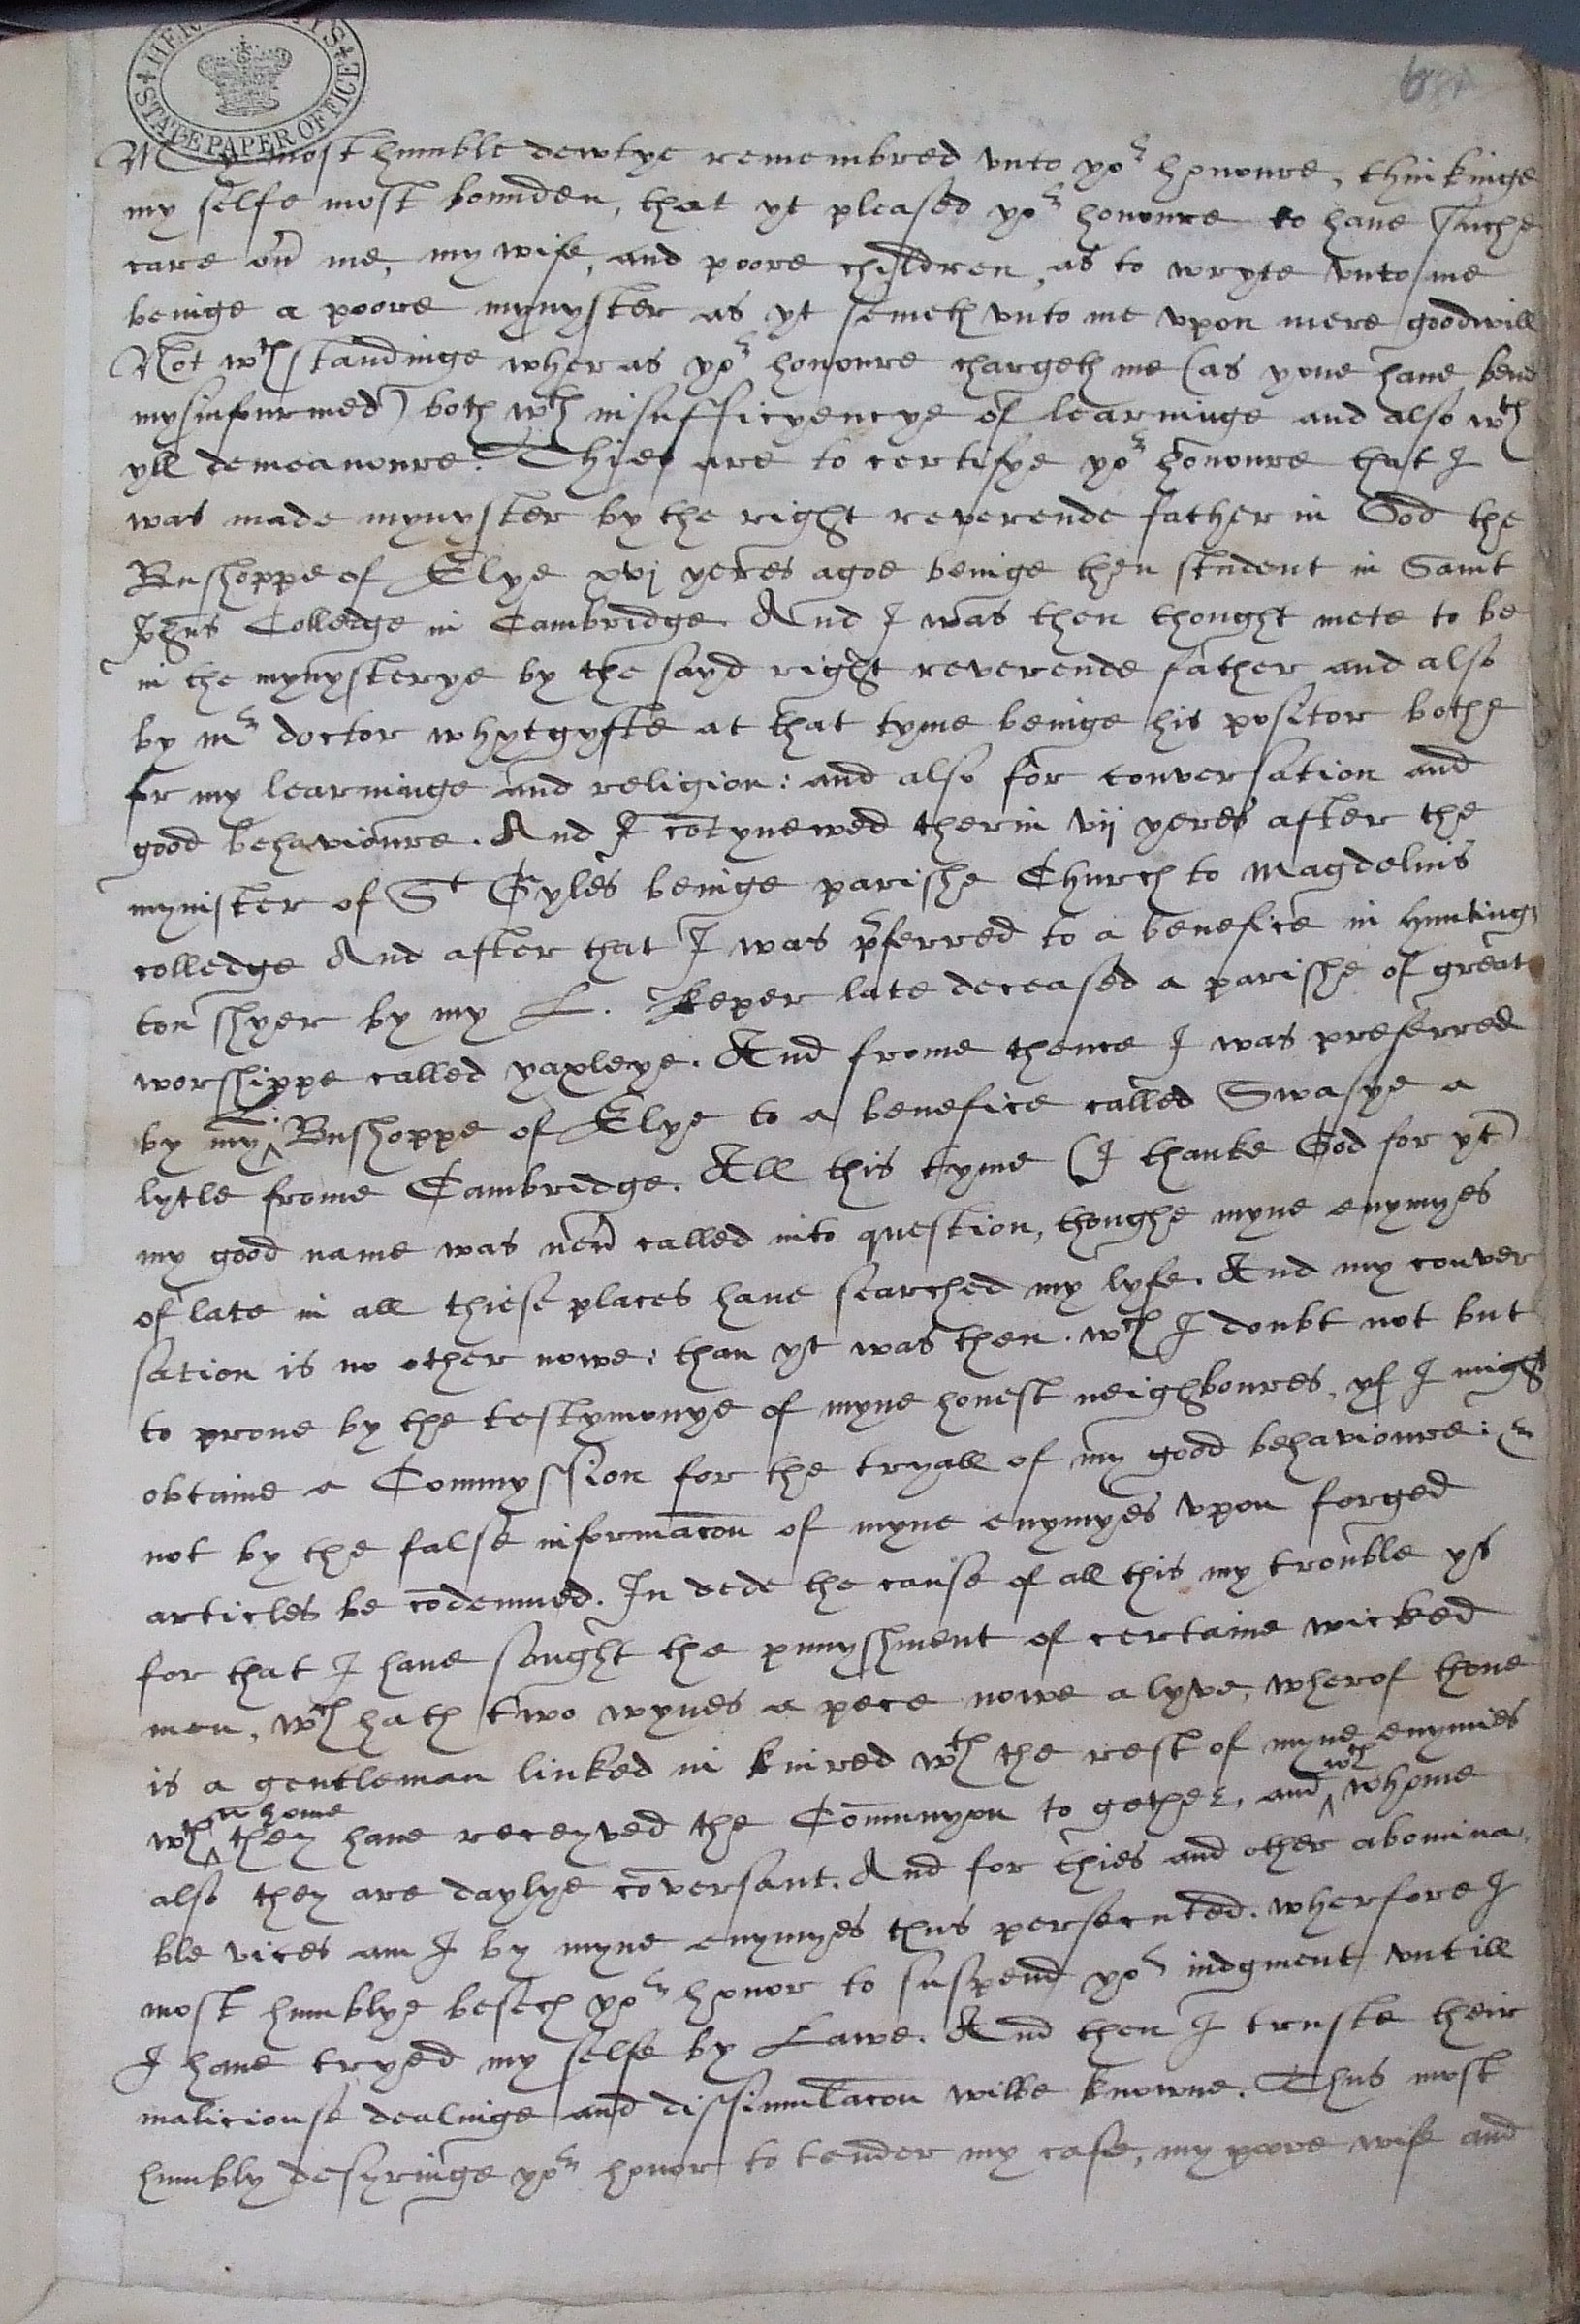 HER MAJESTYS
STATE PAPER OFFICE
My most humble dewtye remembred vnto yor honoure, thinkinge
my selfe most bounden, that yt pleased yor honoure to haue suche
care on me, my wife, and poore children, as to wryte vnto me
beinge a poore mynyster as yt semeth vnto me vpon mere goodwill
Not wth standinge wheras yor honoure chargeth me (as youe haue bene
mysinfourmed) both wth insufficyencye of learninge and also wth
yll demeanoure. Thies are to certifye yor honoure that I
was made mynyster by the right reverende father in God the
Bushoppe of Elye xvj yeres agoe beinge then student in Saint
Johns Colledge in Cambridge. And I was then thought mete to be
in the mynysterye by the sayd right reverende father and also
by mr doctor whytgyfte at that tyme beinge his positor bothe
for my learninge and religion: and also for conversation and
good behavioure. And I cōtynewed therin vij yeres after the
mynister of St Gyles beinge parishe Church to Magdelins
colledge And after that I was p̄ferred to a benefice in Hunting
ton shyer by my L. keper late deceased a parishe of great
worshippe called yaxleye. And frome thence I was preferred
by my L. Bushoppe of Elye to a benefice called Swasye a
lytle frome Cambridge. All this tyme (I thanke God for yt)
my good name was neū called into question, thoughe myne enymyes
of late in all thiese places haue searched my lyfe. And my conver
sation is no other nowe: than yt was then. wch I doubt not but
to proue by the testymonye of myne honest neighboures, yf I might
obtaine a Commyssion for the tryall of my good behavioure: &
not by the false informacōn of myne enymyes vpon forged
articles be cōdemned. In dede the cause of all this my trouble ys
for that I haue sought the punyshment of certaine wicked
men, wch hath two wyues a pece nowe alyve, wherof thone
is a gentleman linked in kinred wth the rest of myne enymies
wth whome they haue receyved the Cōmunyon to gether, and wth whome
also they are daylye cōversant. And for thies and other abomina
ble vices am I by myne enymyes thus persecuted. wherfore I
most humblye besech yor honor to suspend yor iudgment vntill
I haue tryed my selfe by Lawe. And then I truste their
maliciouse dealinge and dissimulacōn wilbe knowne. Thus most
humbly desyringe yor honor to tender my case, my poore wife and